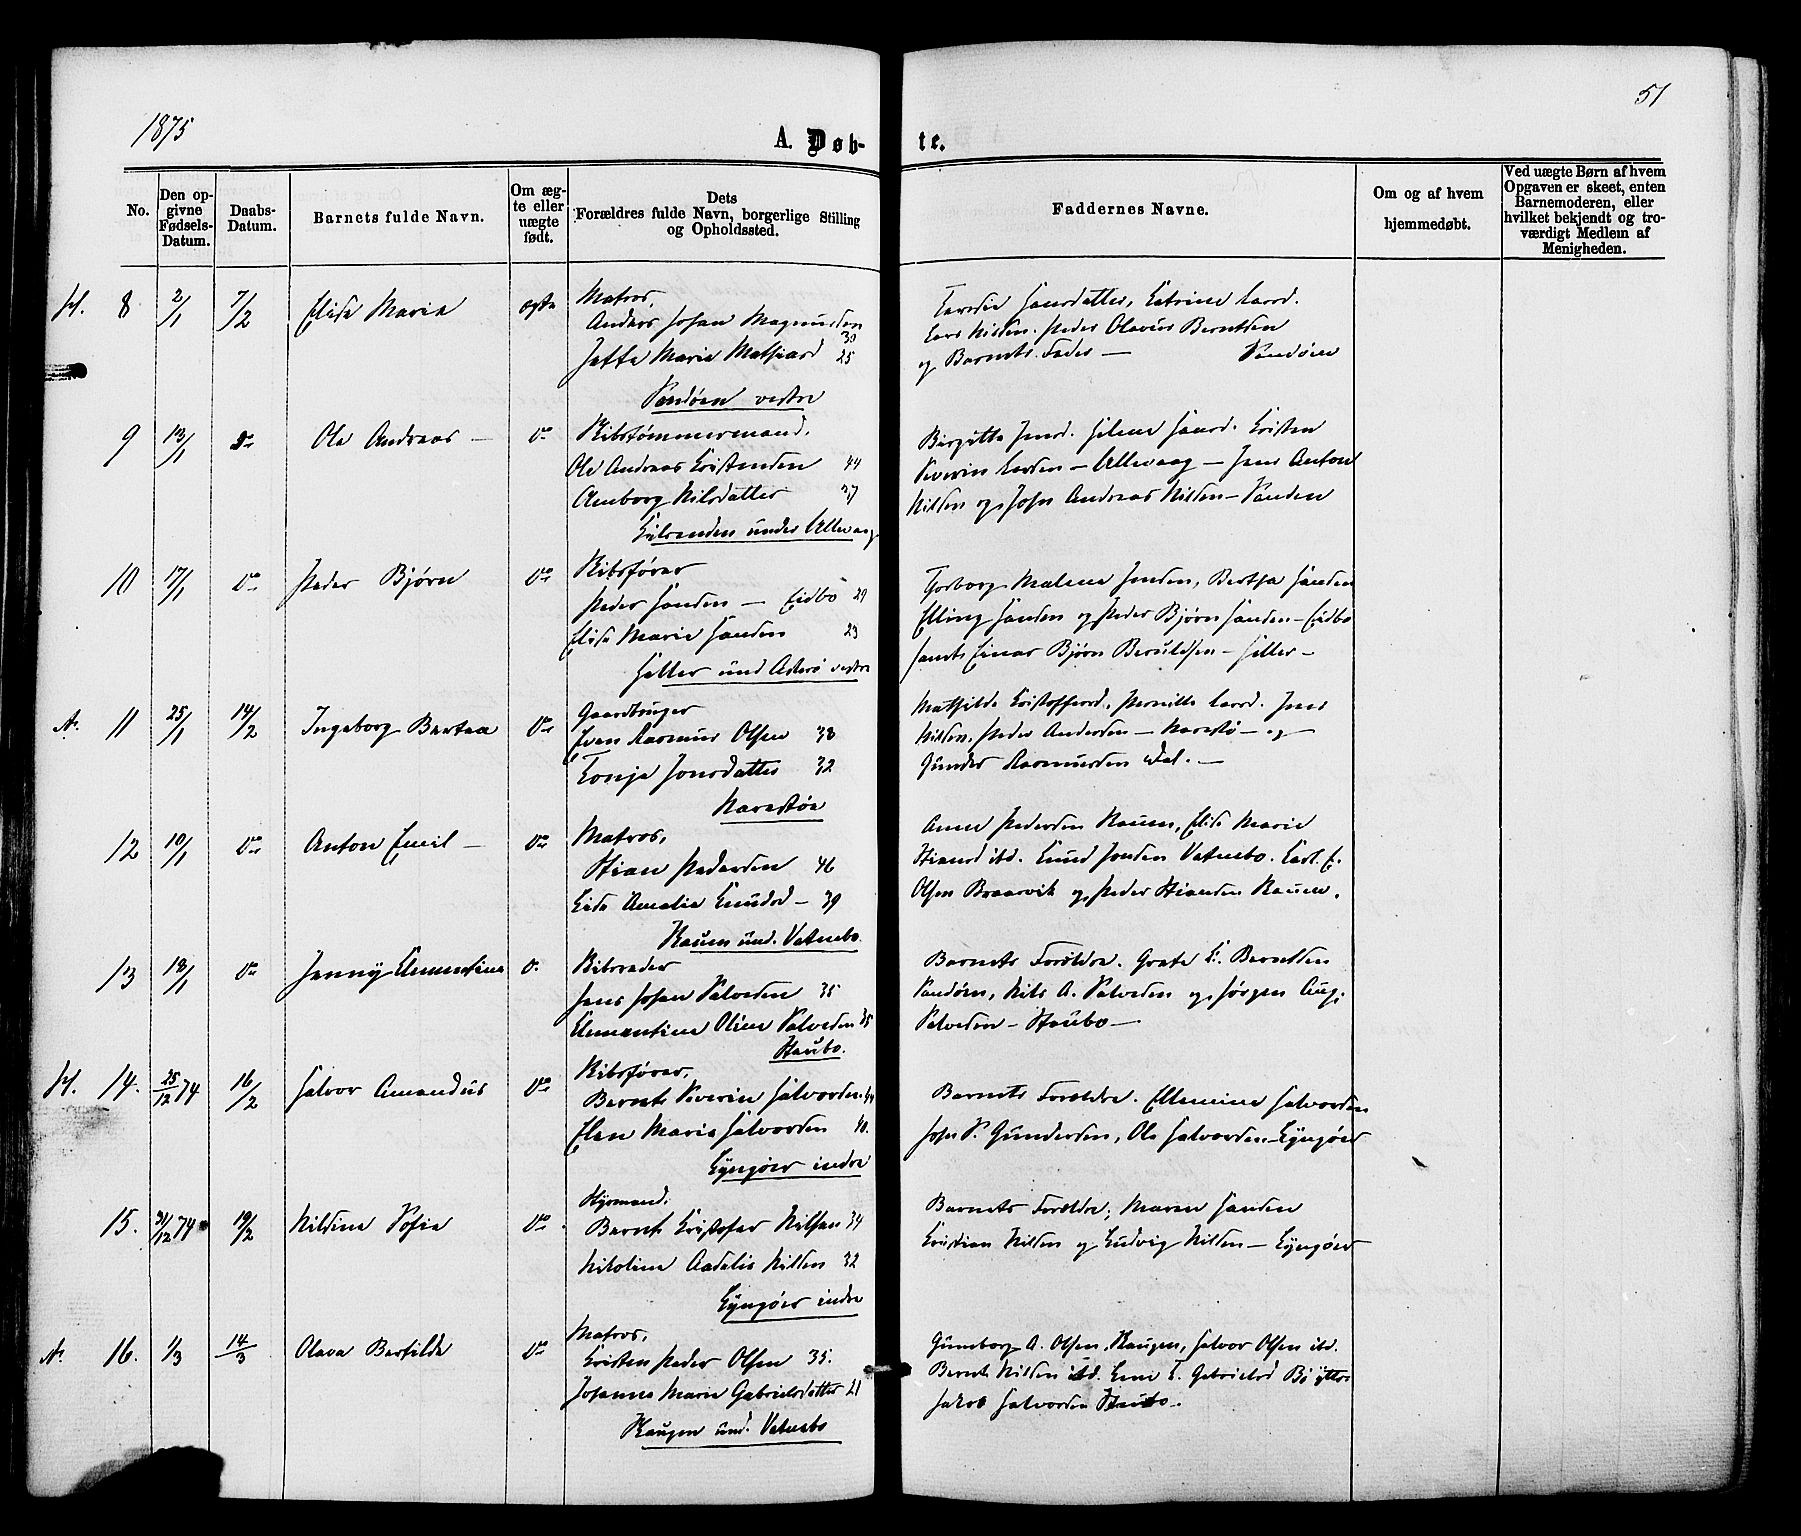 1875
51
A. Døb-
te.
No.
Den op-
givne
Fødsels-
Datum.
Daabs-
Datum.
Barnets fulde Navn.
Om æg-
te eller
uægte
født.
Dets
Forældres fulde Navn, borgerlige Stilling
og Opholdssted.
Faddernes Navne.
Om og af hvem
hjemmedøbt.
Ved uægte Børn af hvem
Opgaven er skeet, enten
Barnemoderen, eller
hvilket bekjendt og tro-
værdigt Medlem af
Menigheden.
8 2/1 7/2 Elise Maria ægte Matros,
Anders Johan Magnussen 30
Marie Mathiasd 25
Sandøen vestre
Hansdatter, Katrine Larsd.
Lars Nilsen. Peder Olavus Berntsen
og Barnets Fader — Sandøen
9 13/1 do Ole Andreas — do Skibstømmermand.
Ole Andreas Kristensen 44
Amborg Nilsdatter 37
under Ullevaag
Birgitte Jensd. Helene Hansd. Kristen
Severin Larsen — Ullevaag — Jens Anton
Nilsen og John Andreas Nilsen — Sanden
10 17/1 do Peder Bjørn do Skibsfører
Peder Hansen — Eidbo 29
Elise Marie Hansen 23
Holter und Askerø vestre
Malene Jensen, Bertha Hansen
Elling Hansen og Peder Bjørn Hansen — Eidbo
samt Einar Bjørn Berulfsen — Holter —
A. 11 25/1 14/2 Ingeborg Bertea do Gaardbruger
Even Rasmus Olsen 38
Tonje Jonsdatter 32
Narestøe
Mathilde Kristoffersd. Pernille Larsd. Jens
Nilsen. Peder Andersen — Narestø — og
Gunder Rasmussen Dal. —
12 10/1 do Anton Emil — do Matros,
Stian Pedersen 46
Amalie Knudsd — 39
und. Vatnebo.
Anne Pedersen Elise Marie
Stiansd ibd. Knud Jensen Vatnebo. Carl E.
Olsen Braarvik og Peder Stiansen
13 18/1 do Jenny Klementine d. Skibsreder
Jens Johan Salvesen 35
Klementine Oline Salvesen 35
Staubo.
Barnets Forældre. Grete K. Berntsen
Sandøen, Nils A. Salvesen og Jørgen Aug.
Salvesen — Staubo —
14. 25/12 74 16/2 Halvor Amandus do Skibsfører,
Bernt Severin Halvorsen 44
Elen Maria Halvorsen 40.
Lyngøer indre
Barnets Forældre. Ellemine Halvorsen
John S. Gundersen, Ole Halvorsen — Lyngøer
15. 31/12 74 19/2 Nilsine Sofie do Styrmand.
Bernt Kristofer Nilsen 34
Nikoline Aadelis Nilsen 32
Lyngøer indre
Barnets Forældre, Maren Hansen
Kristian Nilsen og Ludvig Nilsen — Lyngøer
A. 16. 1/3 14/3 Olava Bertilde do Matros,
Kristen Peder Olsen 35.
Johanne Marie Gabrielsdatter 21
Haugen und. Vatnebo
Guneborg A. Olsen, Haugen, Halvor Olsen ibd.
Bernt Nilsen ibd. T. Gabrielsd
Jakob Halvorsen Staubo.